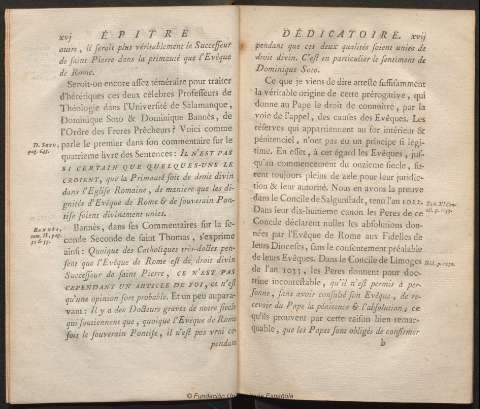 xvj ÉPITRE
autre, il seroit plus véritablement le Successeur
de saint Pierre dans la primeuté que l'Evêque
de Rome.
Seroit-on encore assez téméraire pour traiter
d'hérétiques ces deux célebres Professeurs de
Théologie dans l'Université de Salamanque,
Dominique Soto & Dominique Bannès, de
l'Ordre des Freres Prêcheurs ? Voici comme
D. Soto, parle le premier dans son commentaire sur le
quatrieme livre des Sentences : IL N'EST PAS
SI CERTAIN QUE QUELQUES-UNS LE
CROIENT, que la Primauté soit de droit divin
dans l'Eglise Romaine, de maniere que les di-
gnités d'Evêque de Rome & de souverain Pon-
tife soient divinement unies.
BANNÈS, Bannès, dans ses Commentaires sur la se-
conde Seconde de saint Thomas, s'exprime
ainsi : Quoique des Catholiques très-doctes pen-
sent que l'Evêque de Rome est de droit divin
Successeur de saint Pierre, CE N'EST PAS
CEPENDANT UN ARTICLE DE FOI, ce n'est
qu'une opinion fort probable. Et un peu aupara-
vant : Il y a des Docteurs graves de notre siecle
qui soutiennent que, quoique l'Evêque de Rome
soit le souverain Pontife, il n'est pas vrai ce-
pendant
DÉDICATOIRE. xvij
pendant que ces deux qualités soient unies de
droit divin. C'est en particulier le sentiment de
Dominique Soto.
Ce que je viens de dire atteste suffisamment
la véritable origine de cette prérogative, qui
donne au Pape le droit de connoître, par la
voie de l'appel, des causes des Evêques. Les
réserves qui appartiennent au for intérieur &
pénitenciel, n'ont pas eu un principe si légi-
time. En effet, à cet égard les Evêques, jus-
qu'au commencement du onzieme siecle, fi-
rent toujours pleins de zele pour leur juridic-
tion & leur autorité. Nous en avons la preuve
dans le Concile de Salgunstade, tenu l'an 1022.
Dans leur dix-huitieme canon les Peres de ce
Concile déclarent nulles les absolutions don-
nées par l'Evêque de Rome aux Fidelles de
leurs Diocèses, sans le consentement préalable
de leurs Evêques. Dans le Concile de Limoges
de l'an 1033, les Peres donnent pour doc-
trine incontestable, qu'il n'est permis à per-
sonne, sans avoir consulté son Evêque, de re-
cevoir du Pape la pénitence & l'absolution ; ce
qu'ils prouvent par cette raison bien remar-
quable, que les Papes sont obligés de confirmer
b